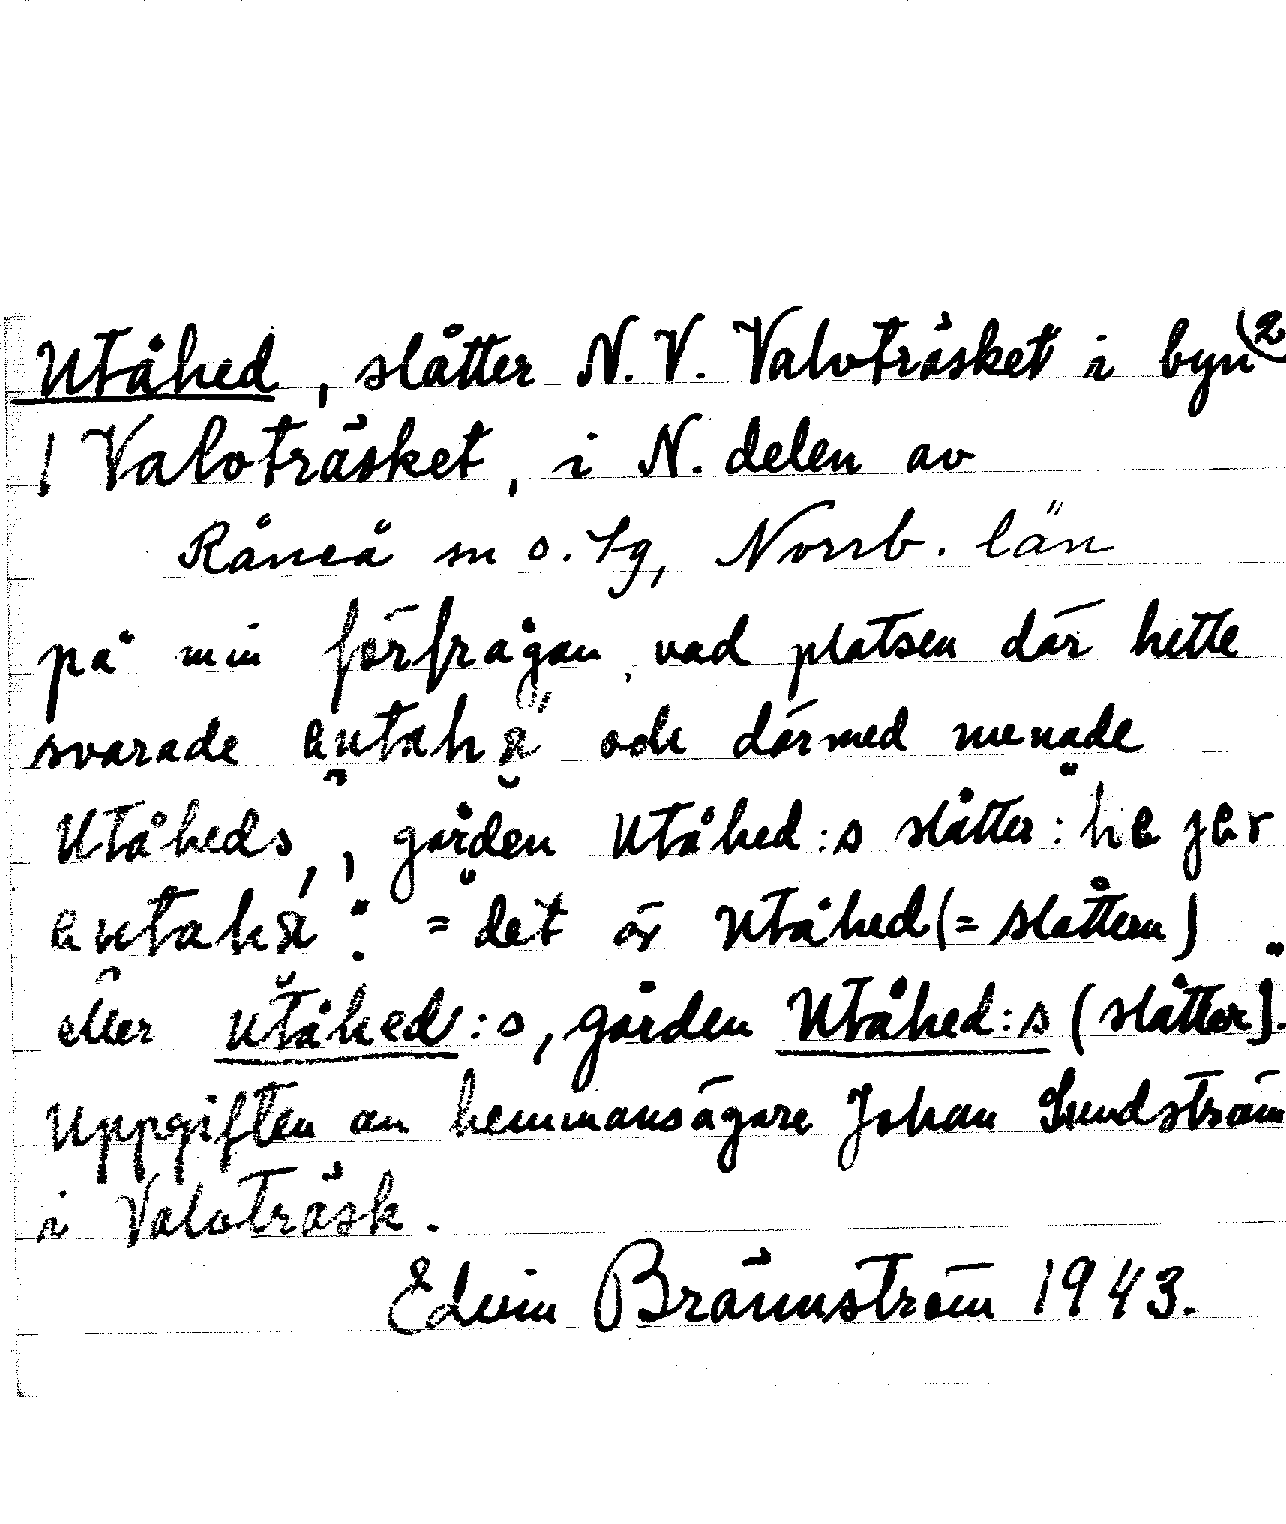 Utåhed, slåtter N.V. Valvträsket i byn (2
/ Valvträsket, i N. delen av
Råneå sn o. tg, Norrb. län
på min förfrågan, vad platsen där hette
svarade och därmed menade
Utåheds, gården Utåhed:s slåtter:
= det är Utåhed (= slåttern)
eller Utåhed:s, gården Utåhed:s (slåtter).
Uppgiften av hemmansägare Johan Sundström
i Valvträsk.
Edvin Brännström 1943.